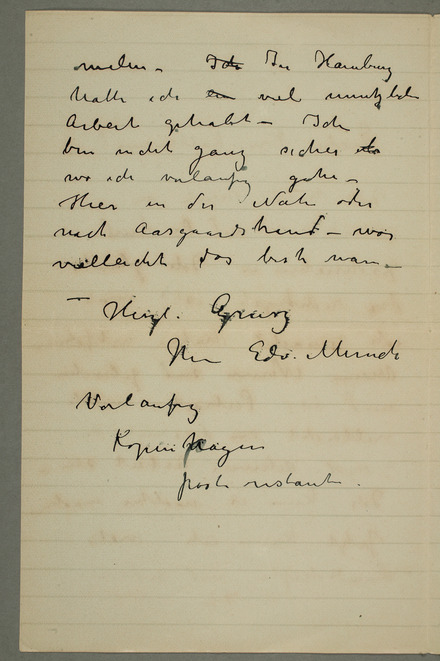 malen – Ich In Hamburg
hatte ich ein viel unnützlich
Arbeit gehabt – Ich
bin nicht ganz sicher
wo ich vorlaufig gehe –
Hier in der Nähe oder
nach Aasgaardstrand – was
vielleicht das beste wäre –
– Herzl. Grusz
Ihr Edv. Munch
Vorlaufig
Kopenhagen
post restante.